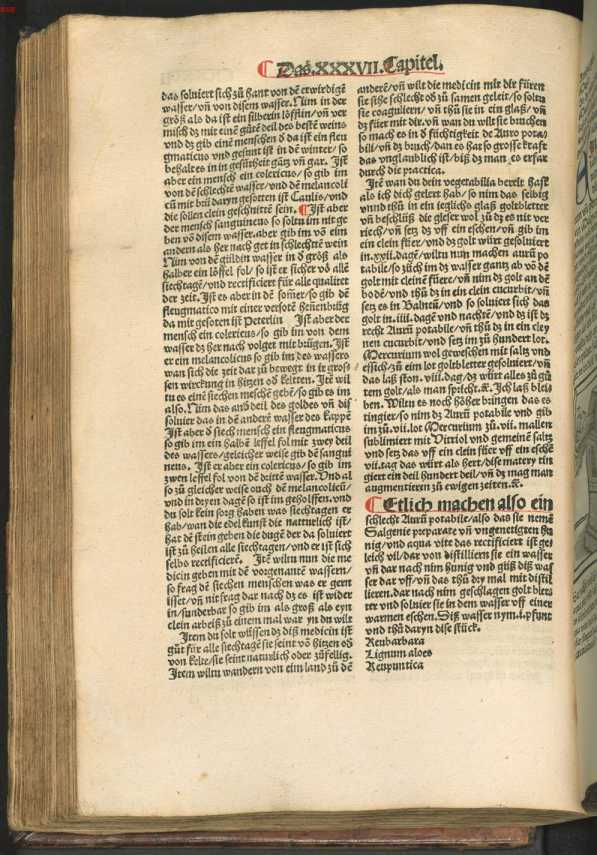 Das .XXXVII. Capitel.
das solviert sich zů hant von dē erwirdigē
wasser/vñ von disem wasser. Nim in der
größ als da ist ein silberin löfflin/vñ ver
misch dz mit einē gůtē deil des bestē weins
vnd dz gib einē menschen d̄ da ist ein fleu
gmaticus vnd gesunt ist in dē winter/so
behalt es in in gesůtheit gātz vñ gar. Ist
aber ein mensch ein colericus/so gib im
von dē schlechtē wasser/vnd dē melancoli
cū mit brů daryn gesotten ist Caulis/vnd
die sollen clein geschnittē sein. Ist aber
der mensch sanguineus so soltu im nit ge
ben vō disem wasser. aber gib im vō eim
andern als her nach get in schlechtē wein
Nim von dē güldin wasser in d̄ größ als
halber ein löffel fol/so ist er sicher vō allē
siechtagē/vnd rectificiert für alle qualitet
der zeit. Ist es aber in dē som̄er/so gib dē
fleugmatico mit einer versotē hēnenbrüg
da mit gesoten ist Peterlin Ist aber der
mensch ein colericus/so gib im von dem
wasser dz her nach volget mit brügen. Ist
er ein melancolicus so gib im des wassers
wan sich die zeit dar zů bewegt in ir gros
sen wirckung in hitzen od̄ keltten. Itē wil
tu es einē siechen mēschē gebē/so gib es im
also. Nim das and̄ deil des goldes vñ dis
solvier das in dē anderē wasser des kappē
Ist aber d̄ siech mensch ein fleugmaticus
so gib im ein halbē leffel fol mit zwey deil
des wassers/geleicher weise gib dē sangui
neus. Ist er aber ein colericus/so gib im
zwen leffel fol von dē drittē wasser. Vnd al
so zů gleicher weise ouch dē melancolicū/
vnd in dryen dagē so ist im geholffen. vnd
du solt kein sorg haben was siechtagen er
hab/wan die edel kunst die natturlich ist/
hat dē stein geben die dugē der da solviert
ist zů heilen alle siechtagen/vnd er ist sich
selbs rectificierē. Itē wiltu nun die me
dicin geben mit dē vorgenantē wassern/
so frag dē siechen menschen was er gern
isset/vñ nit frag dar nach dz es ist wider
in/sunderbar so gib im als groß als eyn
clein arbeiß zů einem mal war yn du wilt
Item du solt wüssen dz diß medicin ist
gůt für alle siechtagē sie seint vō hitzen od̄
von kelte/sie seint naturlich oder zůfellig.
Item wiltu wandern von eim land zů dē
anderē/vñ wilt die medicin mir dir füren
sie sihe schlecht ob zů samen geleit/so soltu
sie coagulieru/vñ thů sie in ein glaß/vñ
dz füer mit dir. vñ wan du wilt sie bruchen
so mach es in d̄ füchtigkeit de Auro pota/
bili/vñ dz bruch/dan es hat so grosse kraft
das vnglaublich ist/biß dz man es erfar
durch die practica.
Itē wan du dein vegetabilia bereit hast
als ich dich gelert hab/so nim das selbig
vnnd thů in ein ieglichs glaß goltbletter
vñ beschlüß die gleser wol zů dz es nit ver
riech/vñ setz dz vff ein eschen/vñ gib im
ein clein füer/vñ dz golt würt gesolviert
in .xxii. dagē/wiltu nun machen aurū po
tabile/so züch im dz wasser gantz ab vō dē
golt mit cleinē füere/vñ nim dz golt an dē
bodē/vnd thů dz in ein clein cucurbit/vñ
setz es in Balneū/vnd so solviert sich das
golt in .iiii. dagē vnd nachtē/vnd dz ist dz
recht Aurū potabile/vñ thů dz in ein cley
nen cucurbit/vnd setz im zů hundert lot.
Mercurium wol geweschen mit saltz vnd
essich/zů eim lot goltbletter gesolviert/vñ
das laß ston .viii. dag/dz würt alles zů gů
tem golt/als man spricht. ꝛc. Ich laß bleib
ben. Wiltu es noch höher bringen das es
tingier/so nim dz Aurū potabile vnd gib
im zů .vii. lot Mercurium zů .vii. mallen
sublimiert mit Vitriol vnd gemeinē saltz
vnd setz das vff ein clein füer vff ein eschē
vii. tag das würt als hert/dise matery tin
giert ein deil hundert deil/vñ dz mag man
augmentieren zů ewigen zeiten. ꝛc.
Etlich machen also ein
schlecht Aurū potabile/also das sie nemē
Salgenie preparate vñ vngenetigten hu
nig/vnd aqua vite das rectificiert ist ge/
leich vil/dar von distillieru sie ein wasser
vñ dar nach nim hunig vnd güß diß was
ser dar vff/vñ das thů dry mal mit distil
lieren. dar nach nim geschlagen golt blett
ter vnd solvier sie in dem wasser vff einer
warmen eschen. Diß wasser nym .i. pfunt
vnd thů daryn dise stück.
Reubarbara
Lignum aloes
Reupuntica